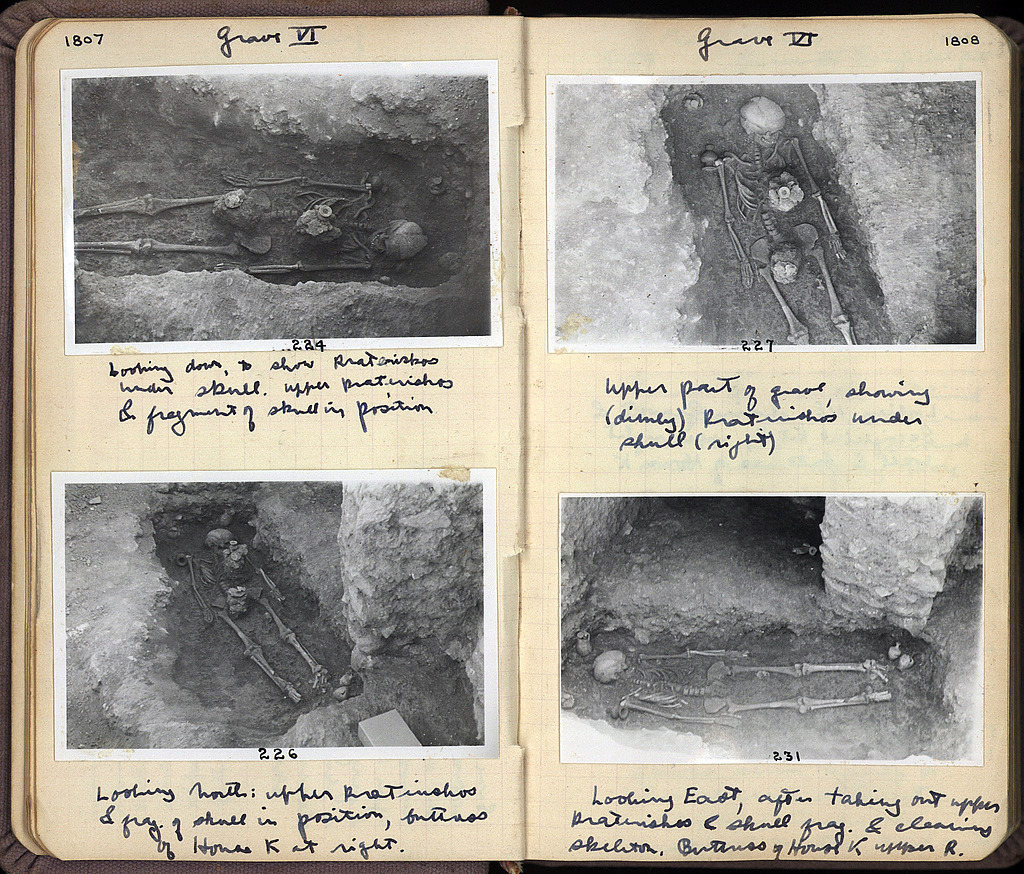 1807
Grave VI
224
Looking down, to show Krateriskos
under skull. upper Krateriskos
& fragment of skull in position
226
Looking North: upper Krateriskos
& frag. of skull in position, buttress
of House K at right.
Grave VI
1808
227
Upper part of grave, showing
(dimly) Krateriskos under
skull (right)
231
Looking East, after taking out upper
Krateriskos & skull frag. & cleaning
skeleton. Buttress of House K upper R.